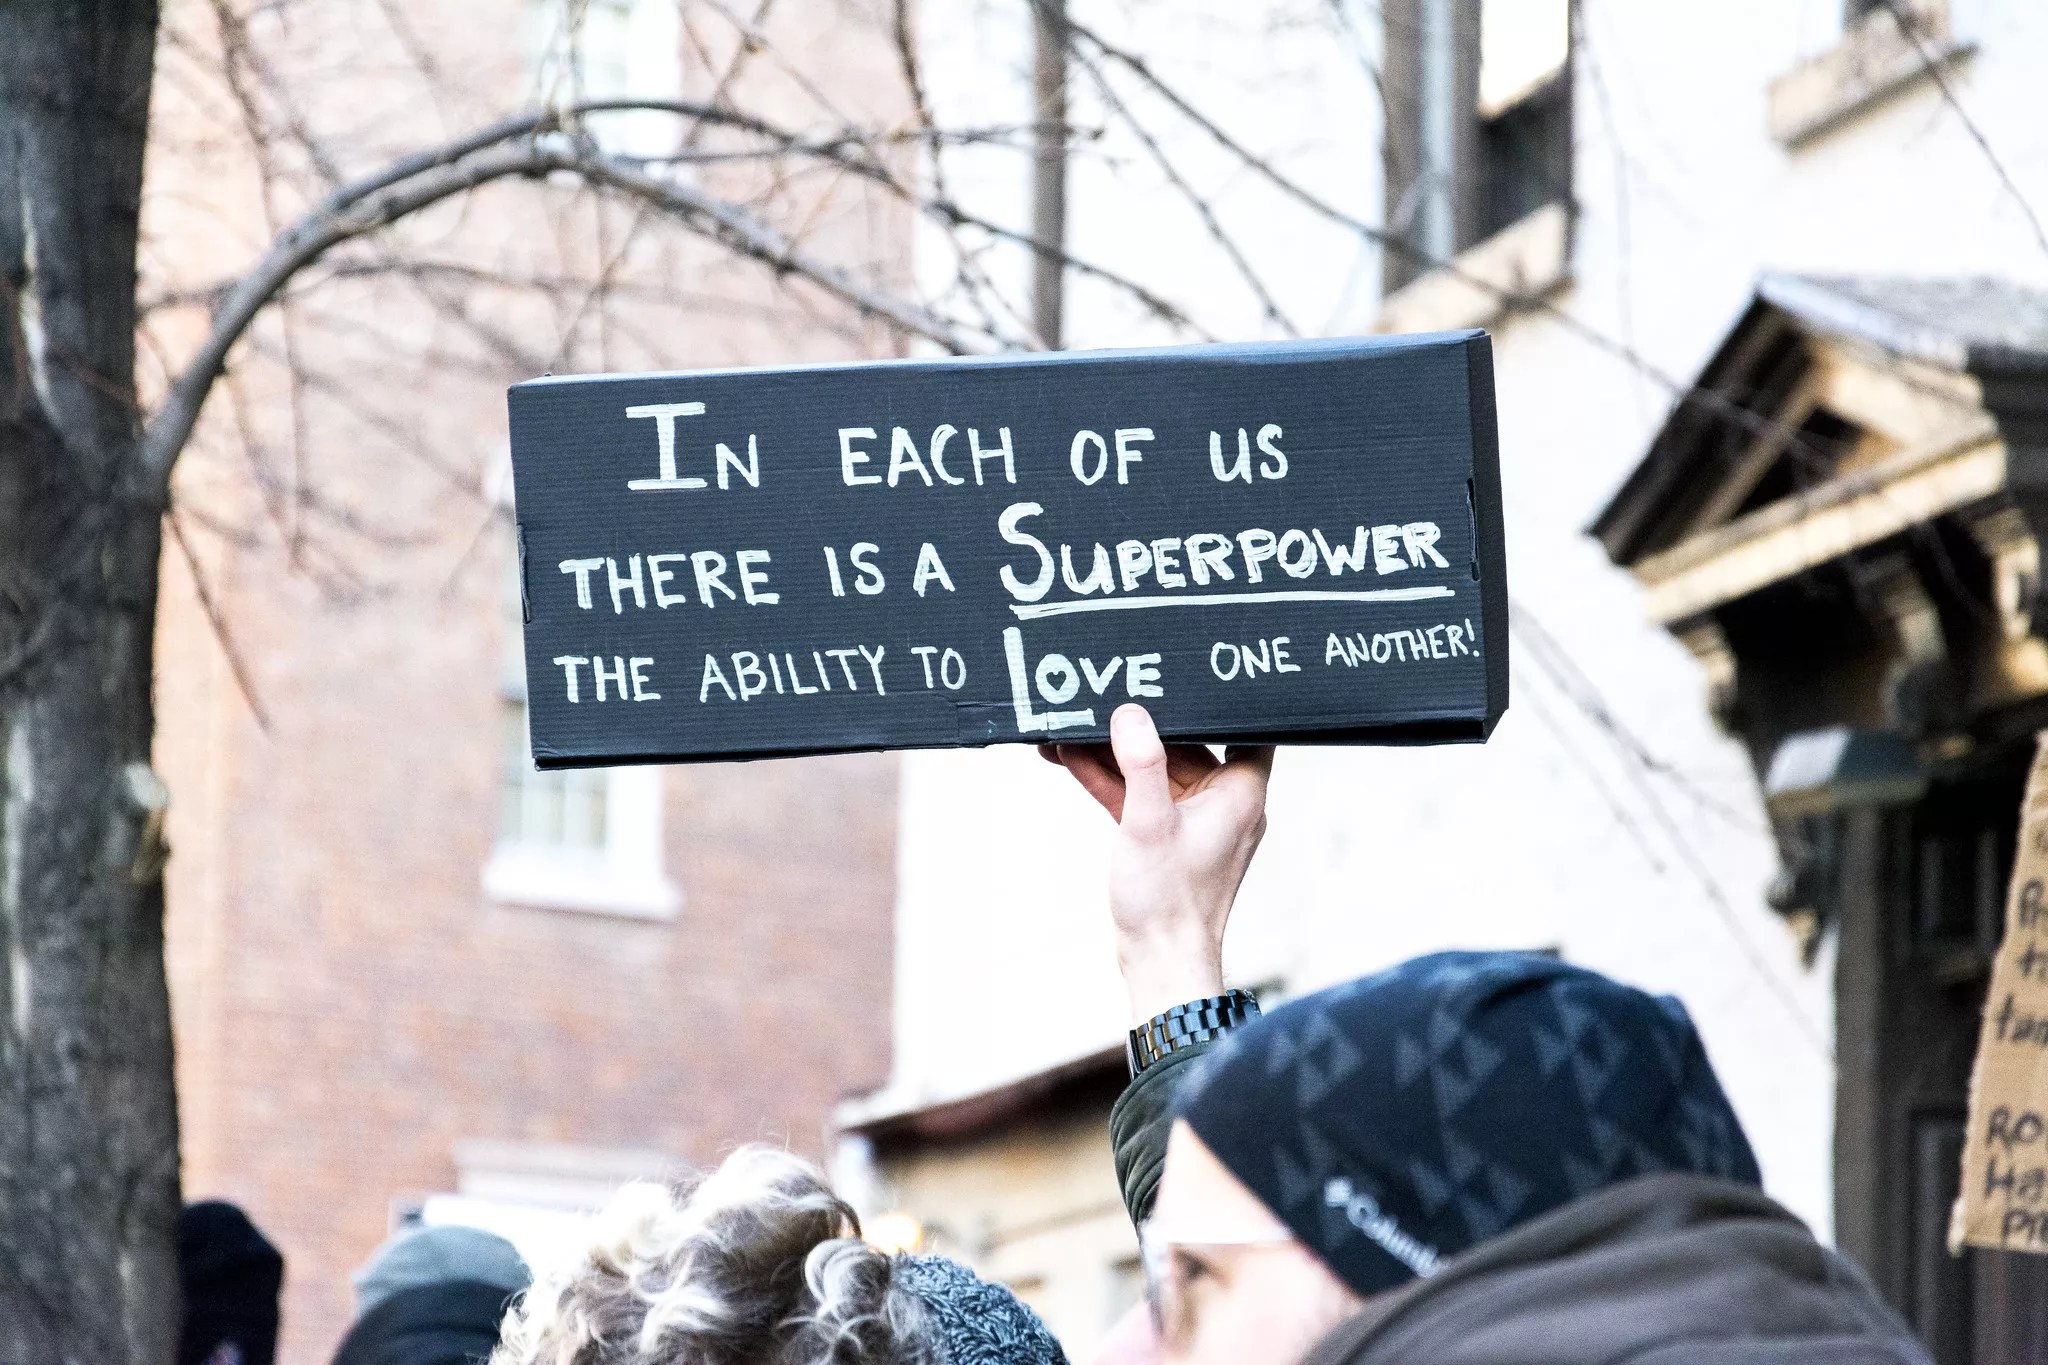 IN EACH OF US
THERE IS A SUPERPOWER
THE ABILITY TO LOVE ONE ANOTHER!
Columbia